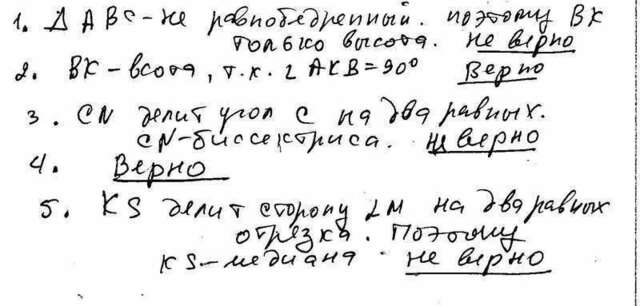 1. Δ ABC - не равнобедренный. поэтому BK
только высота. не верно
2. BK - всота, т.к. ∠ AKB = 90° Верно
3. CN делит угол C на два равных.
CN - биссектриса. не верно
4. Верно
5. KS делит сторону LM на два равных
отрезка. Поэтому
KS - медиана. не верно